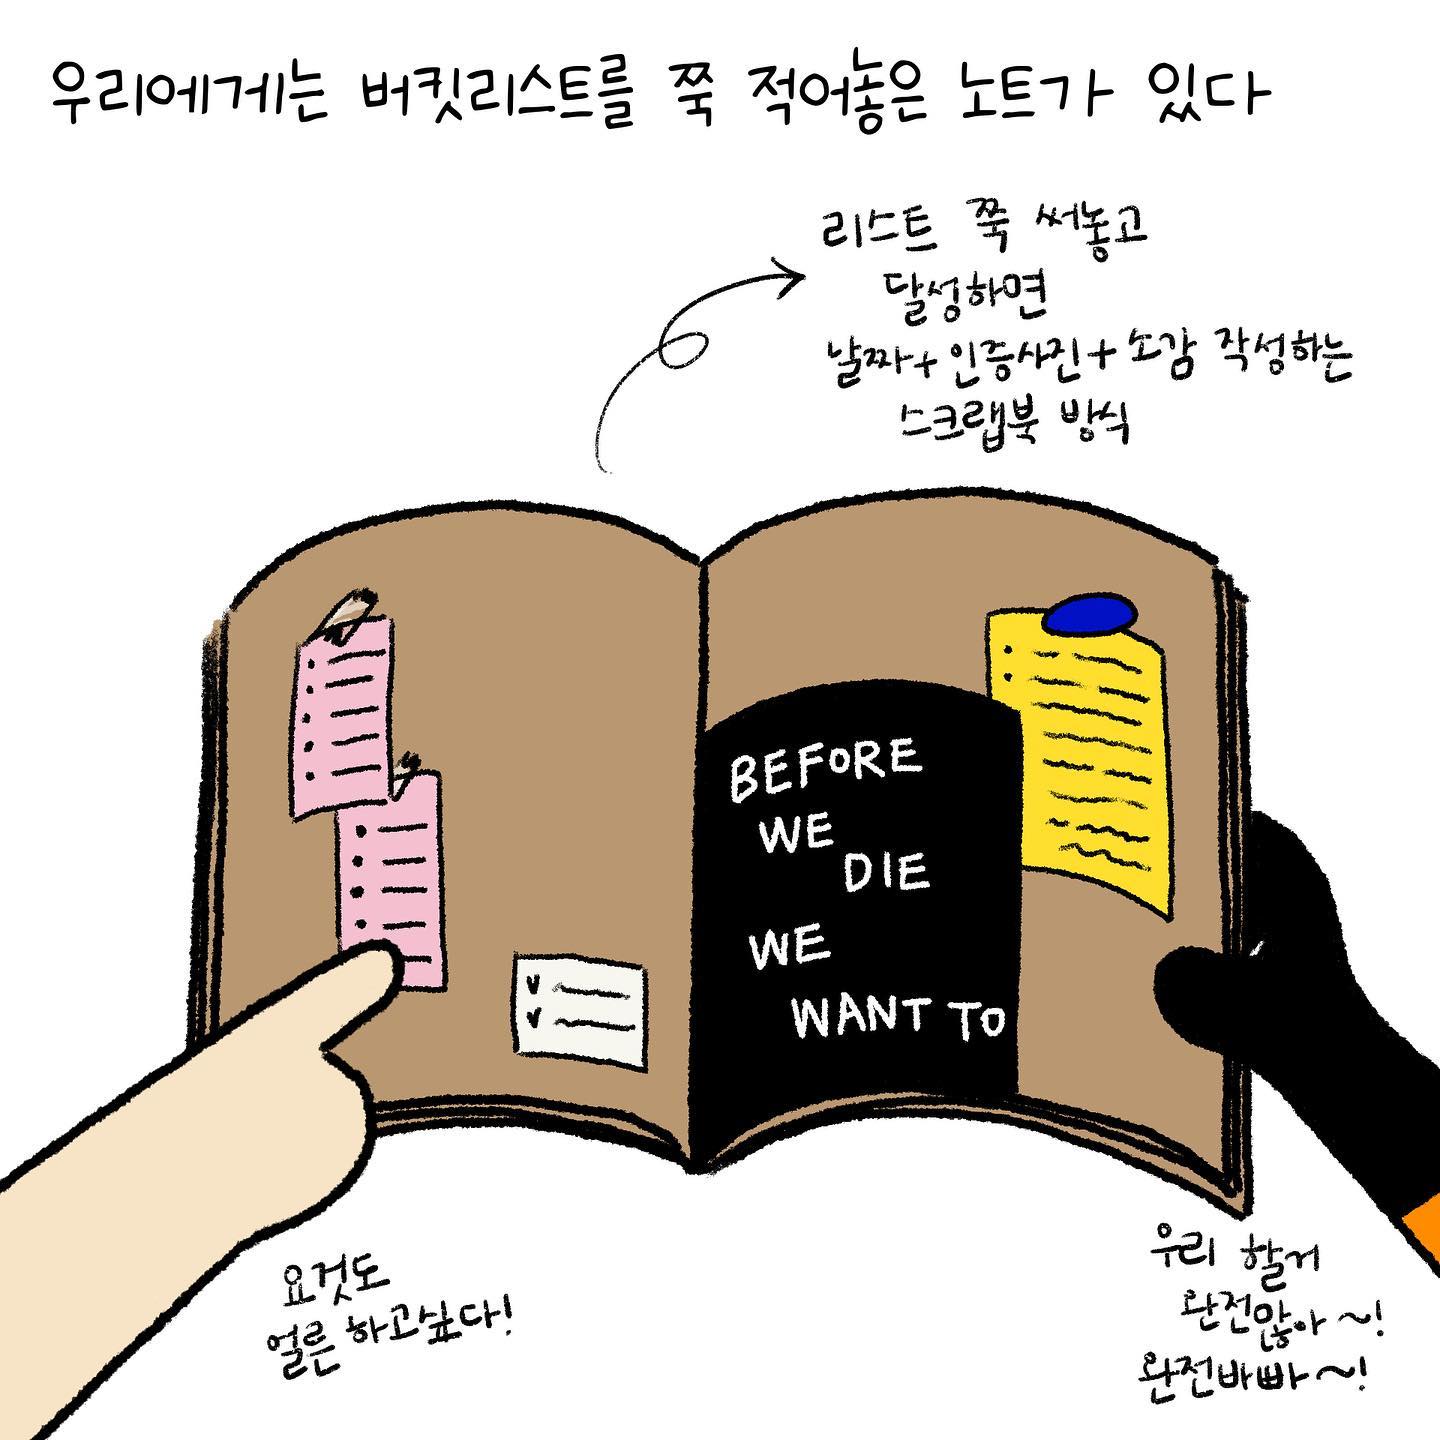 우리에게는 버킷리스트를 쭉 적어놓은 노트가 있다
리스트 쭉 써놓고
달성하면
날짜+인증사진+소감 작성하는
스크랩북 방식
BEFORE
WE
DIE
WE
WANT TO
요것도
얼른 하고싶다!
우리 할거
완전많아~!
완전바빠~!